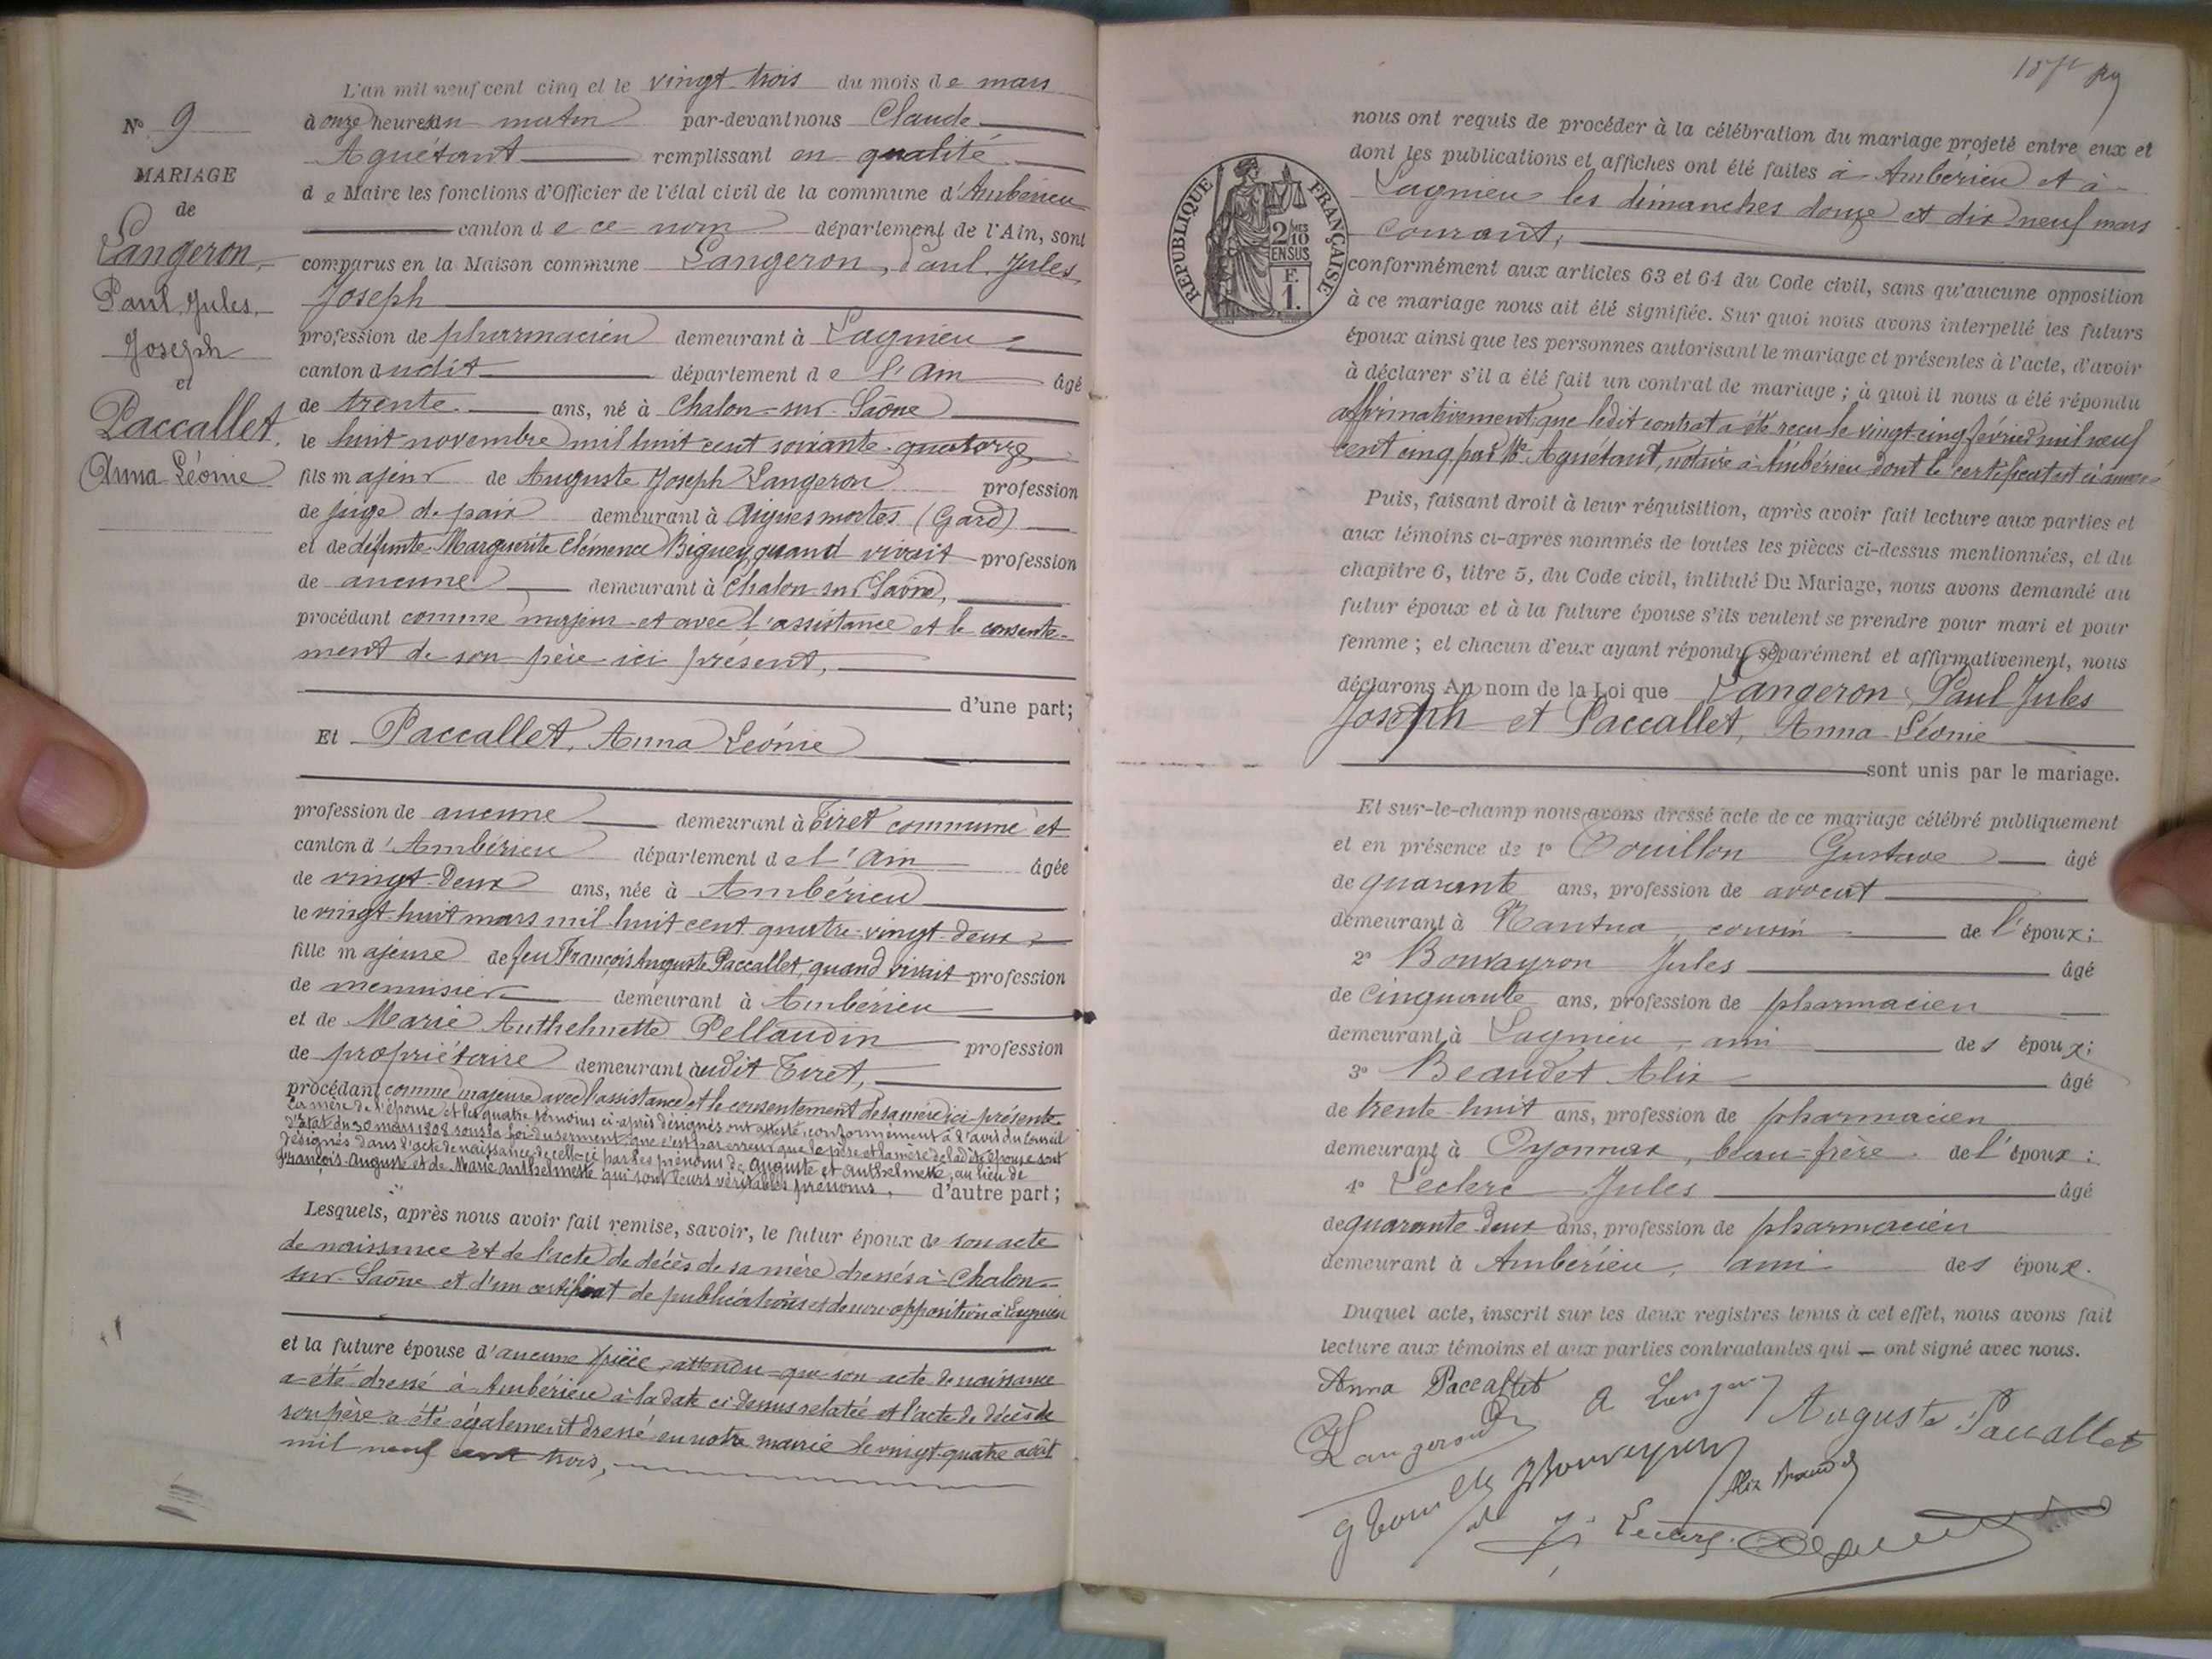 N° 9
MARIAGE
de
Langeron,
Paul Jules
Joseph
et
Paccallet,
Anna Léonie
L'an mil neuf cent cinq et le vingt trois du mois de mars
à onze heures du matin par-devant nous Claude
Aguétant remplissant en qualité
de Maire les fonctions d'Officier de l'état civil de la commune d'Ambérieu
canton de ce nom département de l'Ain, sont
comparus en la Maison commune Langeron, Paul, Jules,
Joseph
profession de pharmacien demeurant à Lagnieu
canton dudit département de l'Ain âgé
de trente ans, né à Chalon-sur-Saône
le huit novembre mil huit cent soixante-quatorze
fils majeur de Auguste Joseph Langeron profession
de juge de paix demeurant à Aiguesmortes (Gard)
et de défunte Marguerite Clémence Biguey, quand vivait profession
de aucune demeurant à Chalon sur Saône,
procédant comme majeur et avec l'assistance et le consente-
ment de son père ici présent,
d'une part;
Et Paccallet, Anna Léonie
profession de aucune demeurant à Tiret commune et
canton d'Ambérieu département de l'Ain âgée
de vingt-deux ans, née à Ambérieu
le vingt huit mars mil huit cent quatre-vingt-deux
fille majeure de feu François Auguste Paccallet, quand vivait profession
de menuisier demeurant à Ambérieu
et de Marie Anthelmette Pellaudin profession
de propriétaire demeurant audit Tiret,
procédant comme majeure avec l'assistance et le consentement de sa mère ici présente
La mère de l'épouse et les quatre témoins ci-après désignés ont attesté, conformément à l'avis du Conseil
d'Etat du 30 mars 1808 sous la foi du serment que c'est par erreur que le père et la mère de ladite épouse sont
désignés dans l'acte de naissance de celle-ci par les prénoms de Auguste et Anthelmette, au lieu de
François-Auguste et de Marie Anthelmette qui sont leurs véritables prénoms, d'autre part;
Lesquels, après nous avoir fait remise, savoir, le futur époux de son acte
de naissance et de l'acte de décès de sa mère dressés à Chalon-
sur-Saône et d'un certificat de publications et de non opposition à Lagnieu
et la future épouse d'aucune pièce, attendu que son acte de naissance
a été dressé à Ambérieu à la date ci-dessus relatée et l'acte de décès de
son père a été également dressé en notre mairie le vingt-quatre août
mil neuf cent trois,
nous ont requis de procéder à la célébration du mariage projeté entre eux et
dont les publications et affiches ont été faites à Ambérieu et à
Lagnieu les dimanches douze et dix neuf mars
courant,
RÉPUBLIQUE FRANÇAISE
2/10 MES
EN SUS
F.
1.
conformément aux articles 63 et 64 du Code civil, sans qu'aucune opposition
à ce mariage nous ait été signifiée. Sur quoi nous avons interpellé les futurs
époux ainsi que les personnes autorisant le mariage et présentes à l'acte, d'avoir
à déclarer s'il a été fait un contrat de mariage ; à quoi il nous a été répondu
affirmativement que ledit contrat a été reçu le vingt-cinq février mil neuf
cent cinq par Me Aguétant, notaire à Ambérieu dont le certificat est ci annexé
Puis, faisant droit à leur réquisition, après avoir fait lecture aux parties et
aux témoins ci-après nommés de toutes les pièces ci-dessus mentionnées, et du
chapitre 6, titre 5, du Code civil, intitulé Du Mariage, nous avons demandé au
futur époux et à la future épouse s'ils veulent se prendre pour mari et pour
femme ; et chacun d'eux ayant répondu séparément et affirmativement, nous
déclarons Au nom de la Loi que Langeron, Paul Jules
Joseph et Paccallet, Anna Léonie
sont unis par le mariage.
Et sur-le-champ nous avons dressé acte de ce mariage célébré publiquement
et en présence de 1° Gustave âgé
de quarante ans, profession de avocat
demeurant à Nantua, cousin de l'époux;
2° Bouvayron Jules âgé
de cinquante ans, profession de pharmacien
demeurant à Lagnieu, ami des époux;
3° Beaudet Alix âgé
de trente-huit ans, profession de pharmacien
demeurant à Oyonnax, beau-frère de l'époux;
4° Leclerc Jules âgé
de quarante-deux ans, profession de pharmacien
demeurant à Ambérieu, ami des époux.
Duquel acte, inscrit sur les deux registres tenus à cet effet, nous avons fait
lecture aux témoins et aux parties contractantes qui ont signé avec nous.
Anna Paccallet
Auguste Paccallet
Langeron
J. Leclerc